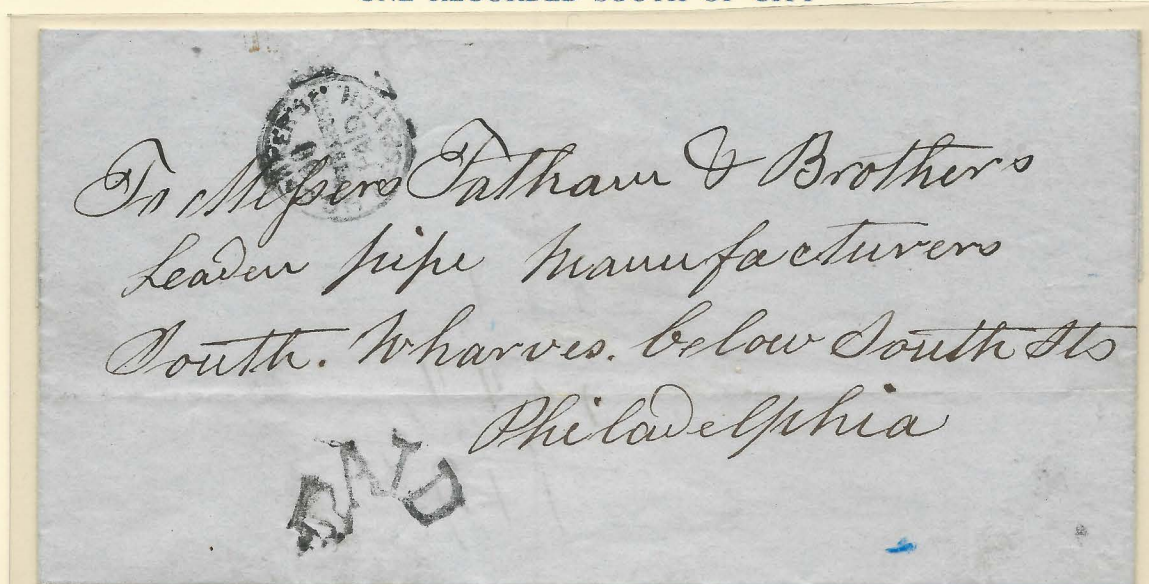 To Messers Tatham & Brothers
Leaden pipe Manufacturers
South. Wharves. below South Sts
Philadelphia
PAID